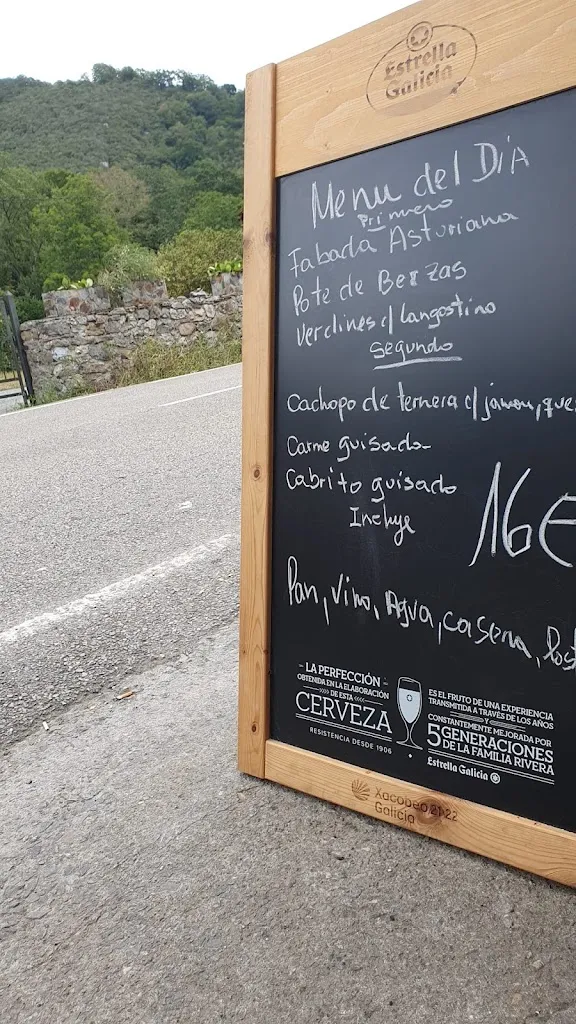 Estrella
Galicia
Menu del DíA
Primero
Fabada Asturiana
Pote de Berzas
Verdines c/ langostino
Segundo
Cachopo de ternera c/ jamon, que
Carne guisada
Cabrito guisado
Incluye
16€
Pan, vino, Agua, casera, Post
LA PERFECCIÓN
OBTENIDA EN LA ELABORACIÓN
DE ESTA
CERVEZA
RESISTENCIA DESDE 1906
ES EL FRUTO DE UNA EXPERIENCIA
TRANSMITIDA A TRAVÉS DE LOS AÑOS
Y
CONSTANTEMENTE MEJORADA POR
5 GENERACIONES
DE LA FAMILIA RIVERA
Estrella Galicia
Xacobeo 21·22
Galicia